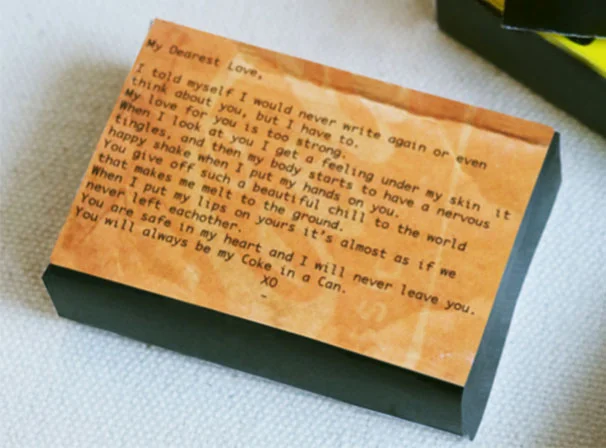 My Dearest Love,
I told myself I would never write again or even
think about you, but I have to.
My love for you is too strong.
When I look at you I get a feeling under my skin it
tingles, and then my body starts to have a nervous
happy shake when I put my hands on you.
You give off such a beautiful chill to the world
that makes me melt to the ground.
When I put my lips on yours it's almost as if we
never left eachother.
You are safe in my heart and I will never leave you.
You will always be my Coke in a Can.
XO
-